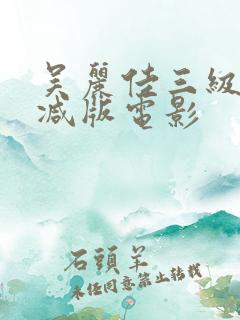 吴麗佳三級
减版電影
石頭羊
未经同意禁止转载